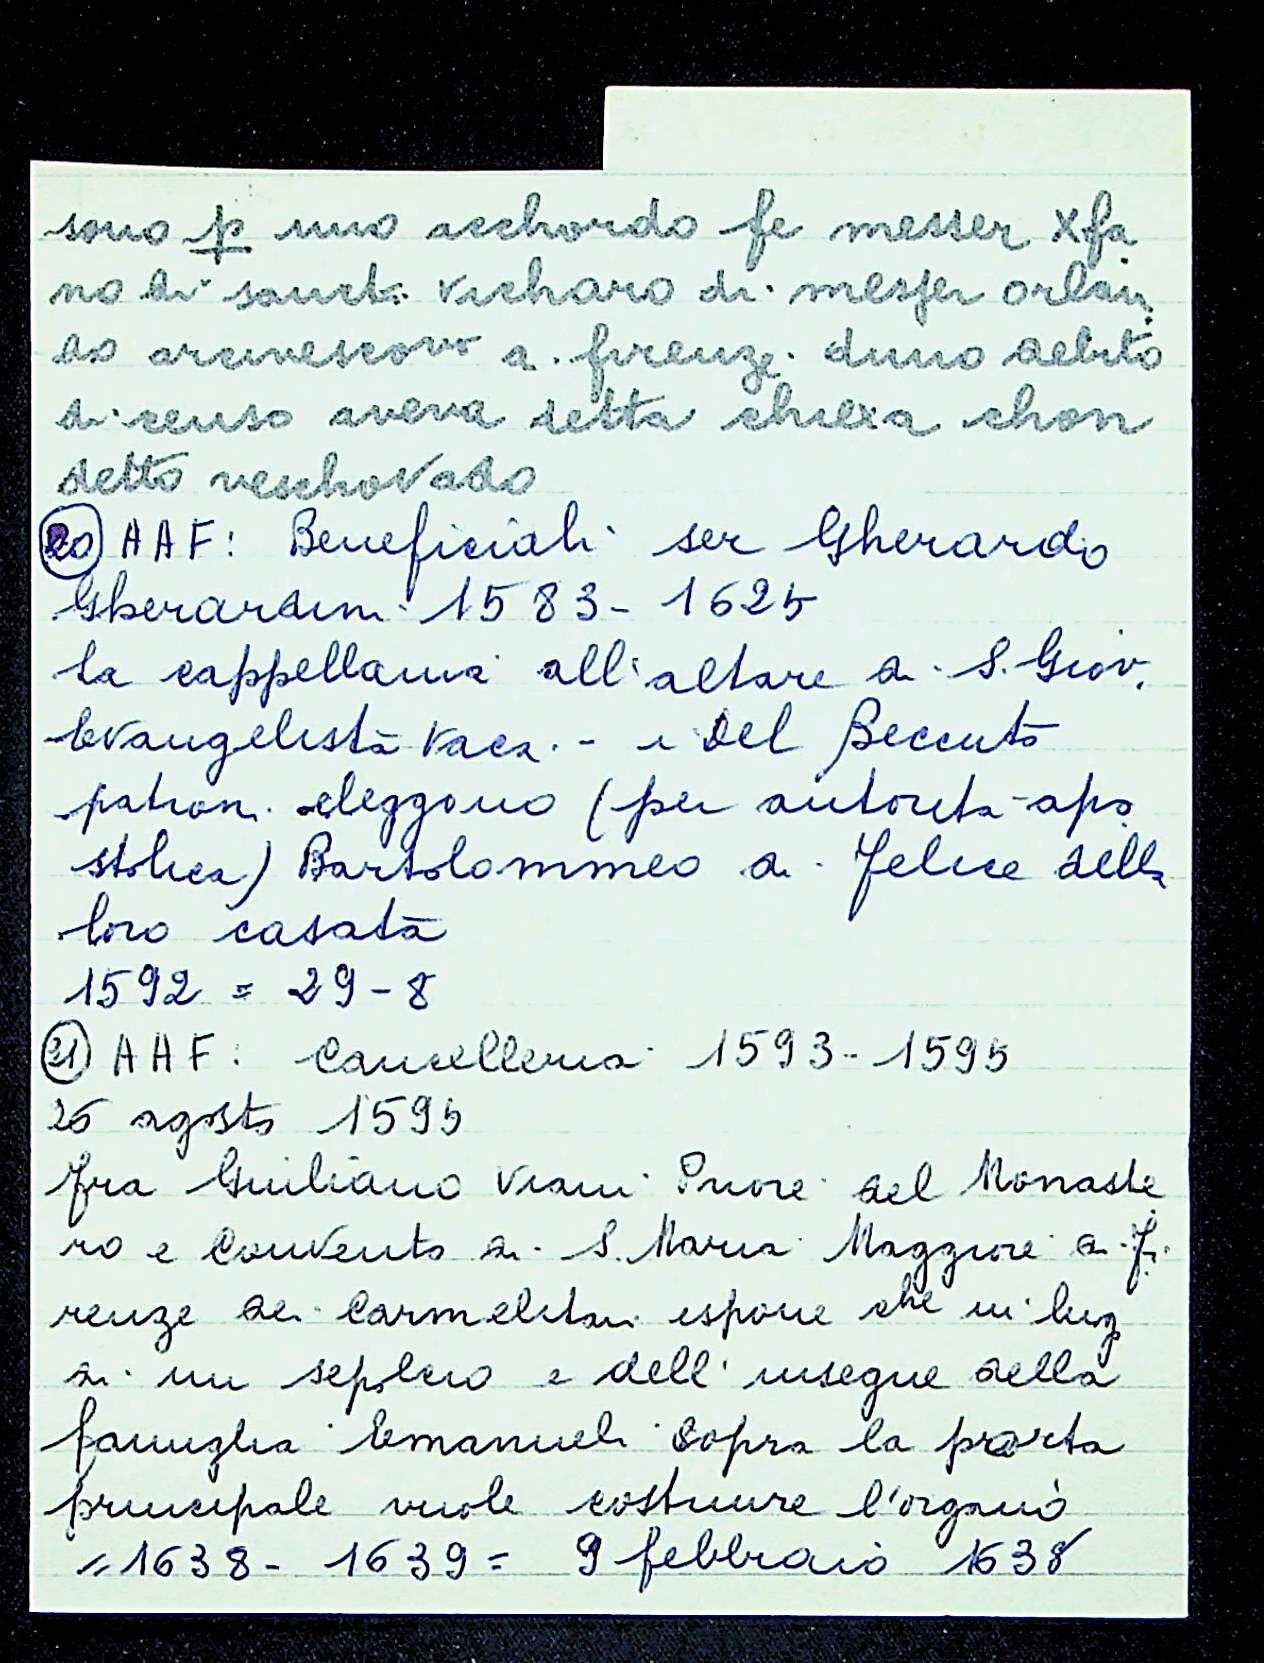 sono p uno acchordo fe messer Xfa
no di sanct. vicharo di messer orlan
do arcivescovo di firenze. duno debito
di censo aveva detta chiexa chon
detto veschovado
20 AAF: Beneficiali ser Gherardo
Gherardini 1583-1625
la cappellania all'altare di S. Giov.
Evangelista vaca. - i del Beccuto
patroni eleggono (per autorità apo
stolica) Bartolommeo di Felice della
loro casata
1592 = 29-8
21 AAF: Cancelleria 1593-1595
26 agosto 1595
fra Giuliano Viani Priore del Monaste
ro e Convento di S. Maria Maggiore di Fi
renze dei Carmelitani espone che in luog
di un sepolcro e dell'insegne della
famiglia Emanueli sopra la porta
principale vuole costruire l'organo
=1638-1639= 9 febbraio 1638